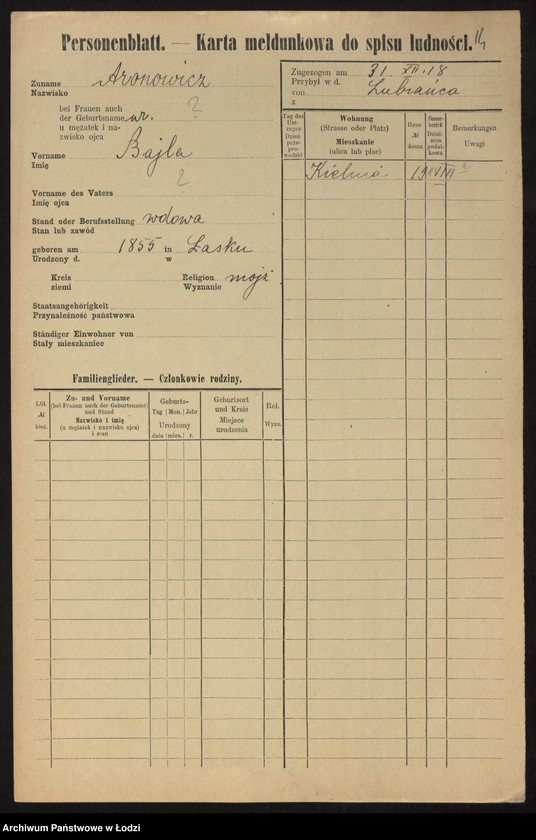 Personenblatt. — Karta meldunkowa do spisu ludności.
Zuname Aronowicz
Nazwisko
bei Frauen auch
der Geburtsname ur. ?
u mężatek i na-
zwisko ojca
Vorname Bajla
Imię
Vorname des Vaters ?
Imię ojca
Stand oder Berufsstellung wdowa
Stan lub zawód
geboren am 1855 in Łasku
Urodzony d. w
Kreis Religion mojż.
ziemi Wyznanie
Staatsangehörigkeit
Przynależność państwowa
Ständiger Einwohner von
Stały mieszkaniec
Familienglieder. — Członkowie rodziny.
Lfd.
№
bież.
Zu- und Vorname
(bei Frauen auch der Geburtsname)
und Stand
Nazwisko i imię
(u mężatek i nazwisko ojca)
i stan
Geburts-
Tag | Mon. | Jahr
Urodzony
dnia | mies. | r.
Geburtsort
und Kreis
Miejsce
urodzenia
Rel.
Wyzn.
Zugezogen am 31 XII. 18
Przybył w d.
von Lubrańca
z
Tag des
Um-
zuges
Dzień
prze-
prowadzki
Wohnung
(Strasse oder Platz)
Mieszkanie
(ulica lub plac)
Haus
№
domu
Steuer-
bezirk
Dziel-
nica
podat-
kowa
Bemerkungen
Uwagi
Kielnia 19 VIII a
Archiwum Państwowe w Łodzi